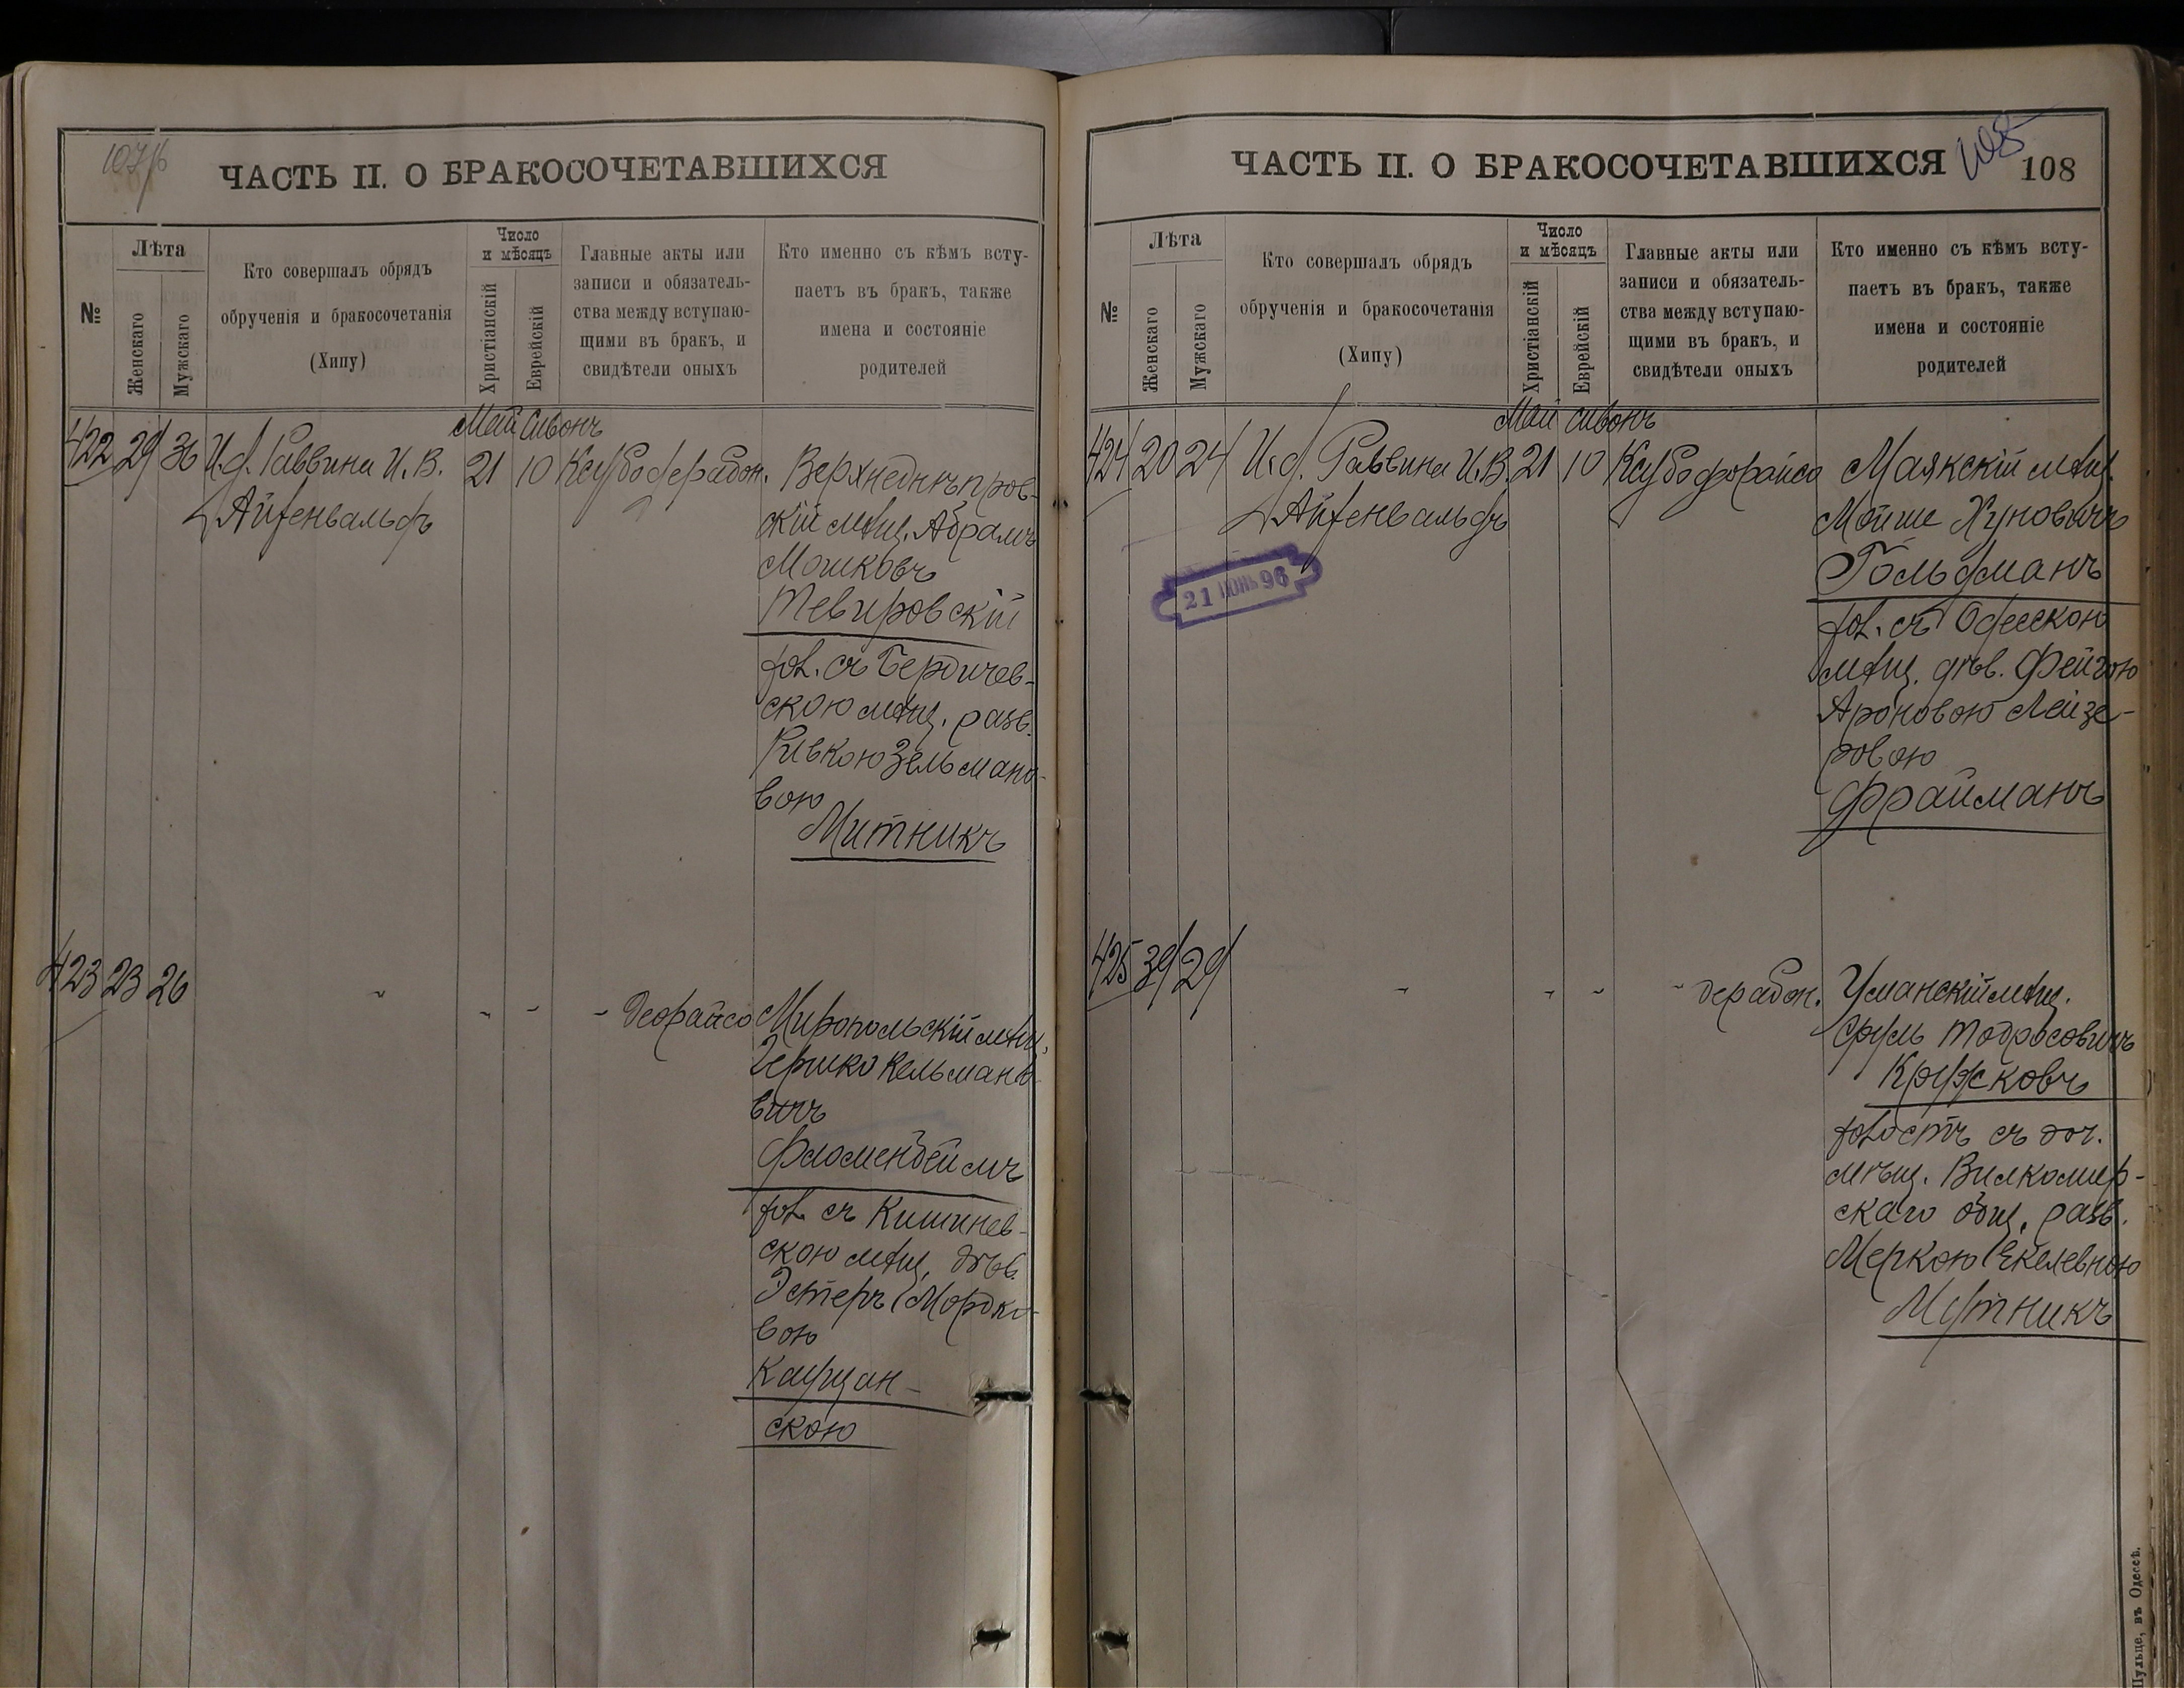 107/б
ЧАСТЬ II. О БРАКОСОЧЕТАВШИХСЯ
№
Лѣта
Женскаго
Мужскаго
Кто совершалъ обрядъ
обрученія и бракосочетанія
(Хипу)
Число
и мѣсяцъ
Христіанскій
Еврейскій
Главные акты или
записи и обязатель-
ства между вступаю-
щими въ бракъ, и
свидѣтели оныхъ
Кто именно съ кѣмъ всту-
паетъ въ бракъ, также
имена и состояніе
родителей
Май Сивонъ
422 29 36 И.д. Раввина И. В. 21 10 Ксубо дерабон. Верхнеднѣпров-
Айхенвальдъ
скій мѣщ. Абрамъ
Мошковъ
Тевировскій
хол. съ Бердичев-
скою мѣщ. разв.
Ривкою Зельмано-
вою
Митникъ
423 23 26 " " " " деорайсо Миропольскій мѣщ.
Гершко Кельмано-
вичъ
Флюменбеймъ
хол. съ Кишинев-
скою мѣщ. дѣв.
Эстеръ Мордко-
вою
Каушан-
скою
ЧАСТЬ II. О БРАКОСОЧЕТАВШИХСЯ
108
108
№
Лѣта
Женскаго
Мужскаго
Кто совершалъ обрядъ
обрученія и бракосочетанія
(Хипу)
Число
и мѣсяцъ
Христіанскій
Еврейскій
Главные акты или
записи и обязатель-
ства между вступаю-
щими въ бракъ, и
свидѣтели оныхъ
Кто именно съ кѣмъ всту-
паетъ въ бракъ, также
имена и состояніе
родителей
Май Сивонъ
424 20 24 И.д. Раввина И.В. 21 10 Ксубо деорайсо Маякскій мѣщ.
Айхенвальдъ
Мойше Хуновичъ
21 ІЮНЬ 96
Гольдманъ
хол. съ Одесскою
мѣщ. дѣв. Фейгою
Ароновою Лейзе-
ровою
Фрайманъ
425 39 29 " " " " дерабон. Уманскій мѣщ.
Сруль Тодросовичъ
Кружковъ
холостъ съ доч.
мѣщ. Вилкомир-
скаго общ. разв.
Меркою Екелевною
Мутникъ
Шульце, въ Одессѣ.